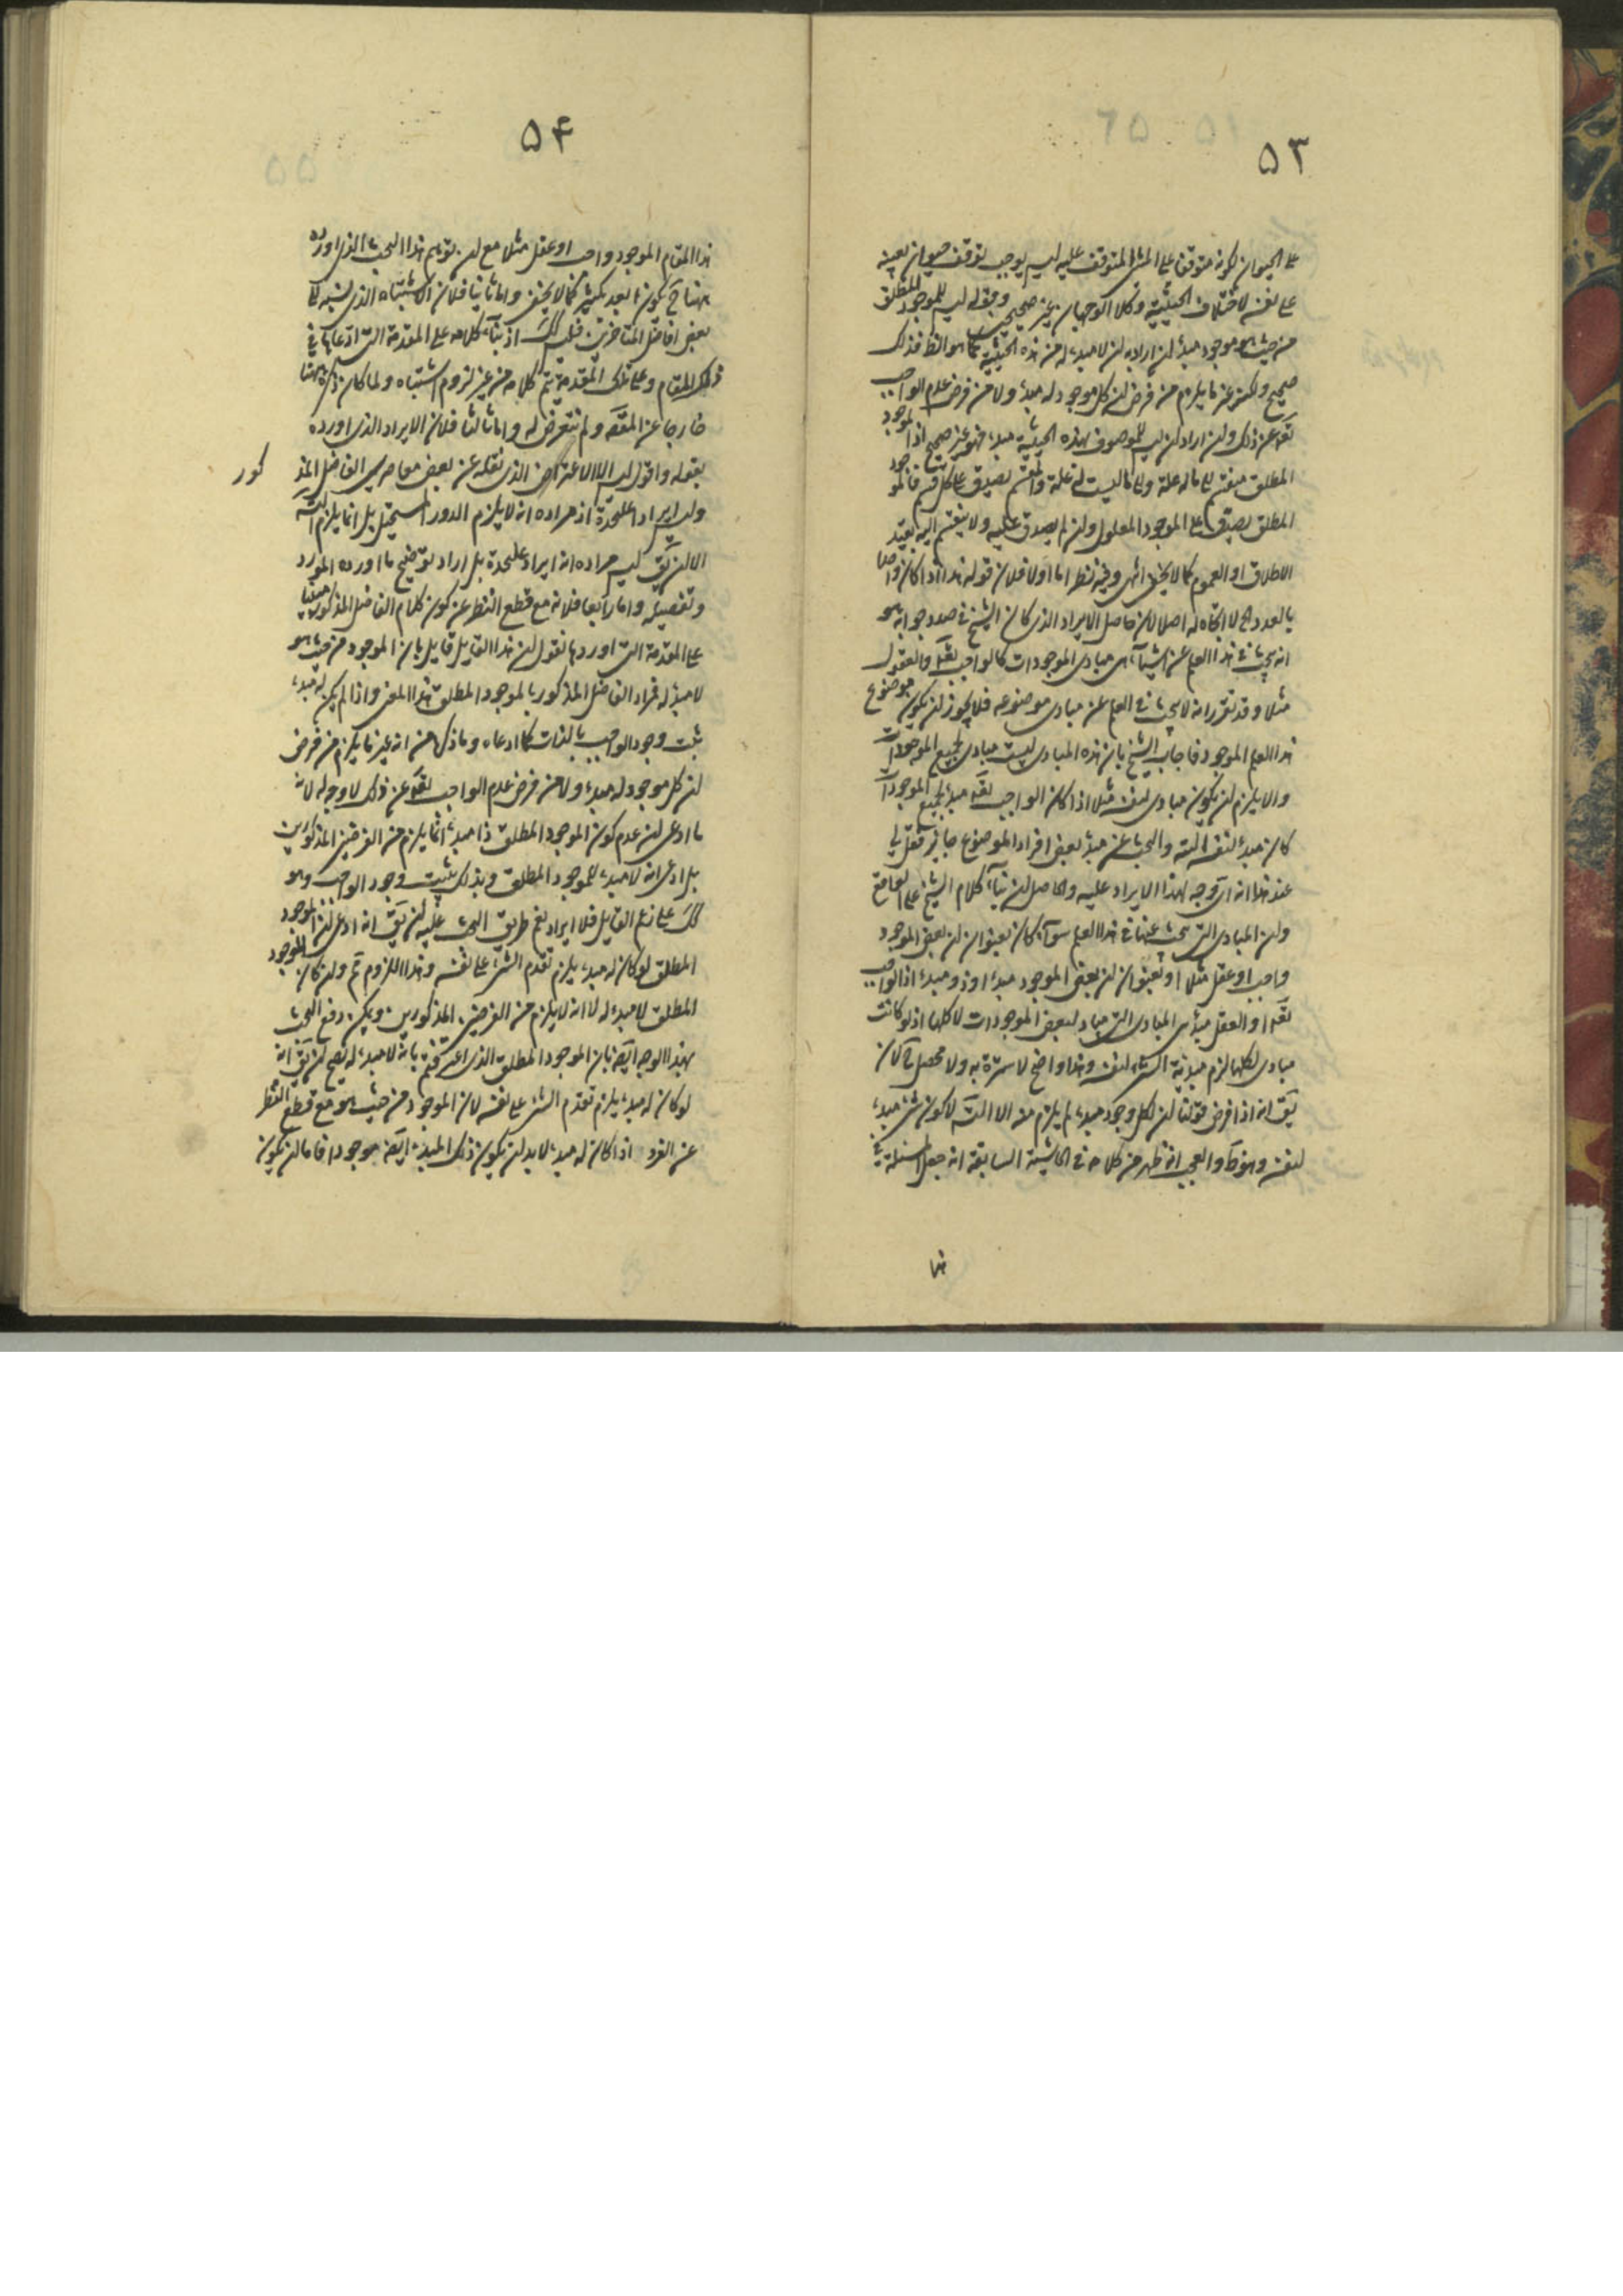 ۵۳
على الحيوان لكونه متوقفا على المشي المتوقف عليه ليس يوجب توقف حيوان بعينه
على نفسه لاختلاف الحيثية وكلا الوجهان غير صحيحين وقوله ليس للموجود المطلق
من حيث هو موجود مبدأ ان اراد به ان لا مبدء له من هذه الحيثية كما هو الظ فذلك
صحيح ولكنه غير ما يلزم من فرض ان كل موجود له مبدأ ولا من فرض عدم الواجب
تعه عن ذلك وان اراد ان ليس للموصوف بهذه الحيثية مبدء فهو غير صحيح اذ الموجود
المطلق منقسم الى ما له علة والى ما ليست له علة والمقسم يصدق على كل قسم فالموجود
المطلق يصدق على الموجود المعلول وان لم يصدق عليه ولا ينقسم اليه بقيد
الاطلاق او العموم كما لا يخفى انتهى وفيه نظر اما اولا فلان قوله هذا اذا كان واحدا
بالعدد الخ لا اتجاه له اصلا لان حاصل الايراد الذي كان الشيخ في صدد جوابه هو
انه يبحث في هذا العلم عن اشياء هي مبادي الموجودات كالواجب تعه والعقول
مثلا وقد تقرر انه لا يبحث في العلم عن مبادي موضوعه فلا يجوز ان يكون موضوع
هذا العلم الموجود فاجاب الشيخ بان هذه المبادي ليست مبادي لجميع الموجودات
والا يلزم ان يكون مبادي لنفسه مثلا اذا كان الواجب تعه مبدء لجميع الموجودات
كان مبدأ لنفسه البتة والبحث عن مبدأ بعض افراد الموضوع جايز فعلى
عند هذا انه اي وجه لهذا الايراد عليه والحاصل ان بناء كلام الشيخ على الواقع
وان المبادي التي يبحث عنها في هذا العلم سواء كان بعنوان ان بعض الموجود
واجب او عقل مثلا او بعنوان ان بعض الموجود مبدء او ذو مبدء اذ الواجب
تعه او العقل مبدأ هي المبادي التي مباد لبعض الموجودات لا كلها اذ لو كانت
مبادي لكلها لزم مبدئية الشيء لنفسه وهذا واضح لا سترة به ولا محصل ح لان
يق انه اذا فرض قولنا ان لكل وجود مبدء لم يلزم منه الا البتة لا كون شئ مبدء
لنفسه وهو ظ والعجب انه ظهر من كلامه في الحاشية السابقة انه جعل المسئلة في
هذا
۵۴
هذا المقام الموجود واجب او عقل مثلا مع ان توهم هذا البحث الذي اورده
ههنا ح يكون ابعد بكثير كما لا يخفى واما ثانيا فلان الاشتباه الذي نسبه الى
بعض افاضل المتاخرين فليس كك اذ بناء كلامه على المقدمة التي ادعاها في
ذلك المقام وعلى تلك المقدمة يتم كلامه من غير لزوم اشتباه ولما كان ذكره ههنا
خارجا عن المقصد ولم نتعرض له واما ثالثا فلان الايراد الذي اورده
بقوله واقول ليس الا الاعتراض الذي نقله عن بعض معاصري الفاضل المذ
كور
وليس ايرادا علىحدة اذ مراده انه لا يلزم الدور المستحيل بل انما يلزم البتة
الا ان يق ليس مراده انه ايراد علىحدة بل اراد توضيح ما اورده المورد
وتفصيله واما رابعا فلانه مع قطع النظر عن كون كلام الفاضل المذكور مبنيا
على المقدمة التي اوردها نقول ان هذا القايل قايل بان الموجود من حيث هو
لا مبدأ له فمراد الفاضل المذكور بالموجود المطلق هذا المعنى واذا لم يكن له مبدء
ثبت وجود الواجب بالذات كما ادعاه وما ذكره من انه غير ما يلزم من فرض
ان كل موجود له مبدء ولا من فرض عدم الواجب تعه عن ذلك لا وجه له لانه
ما ادعى ان عدم كون الموجود المطلق ذا مبدء انما يلزم من الفرضين المذكورين
بل ادعى انه لا مبدء للموجود المطلق وبذلك يثبت وجود الواجب وهو
كك على زعم القايل فلا ايراد نعم طريق البحث عليه ان يق انه ادعى ان الموجود
المطلق لو كان له مبدء يلزم تقدم الشئ على نفسه وهذا اللزوم ثم وان كان الموجود
المطلق لا مبدء له لا انه لا يلزم من الفرضين المذكورين ويمكن دفع البحث
بهذا الوجه ايضا بان الموجود المطلق الذي اعترفتم بانه لا مبدء له يصح ان يق انه
لو كان له مبدء يلزم تقدم الشئ على نفسه لان الموجود من حيث هو مع قطع النظر
عن الفرد اذا كان له مبدء لا بد ان يكون ذلك المبدء ايضا موجودا فاما ان يكون